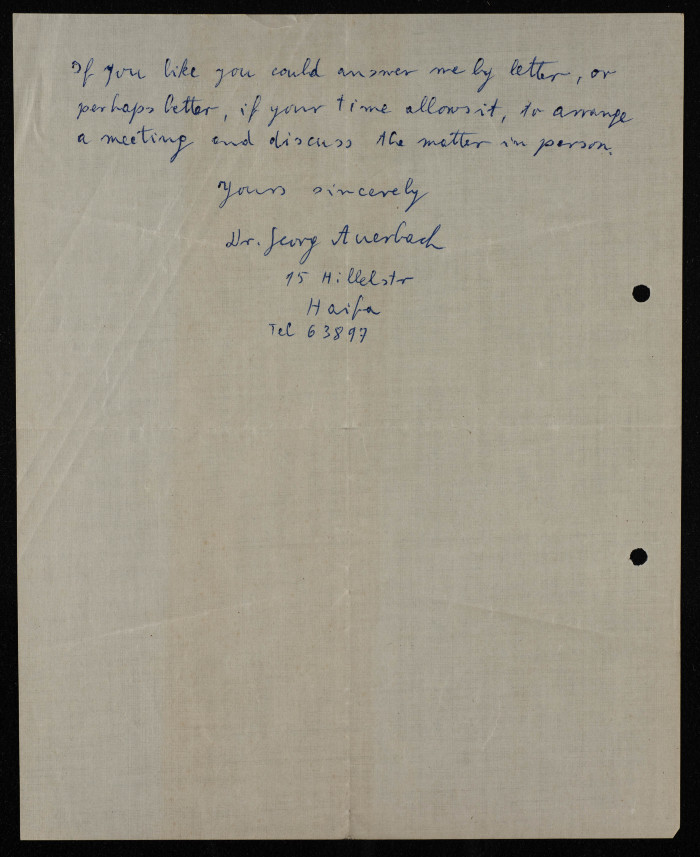 If you like you could answer me by letter, or
perhaps better, if your time allows it, to arrange
a meeting and discuss the matter in person.
Yours sincerely
Dr. Georg Auerbach
15 Hillelstr
Haifa
Tel 63897